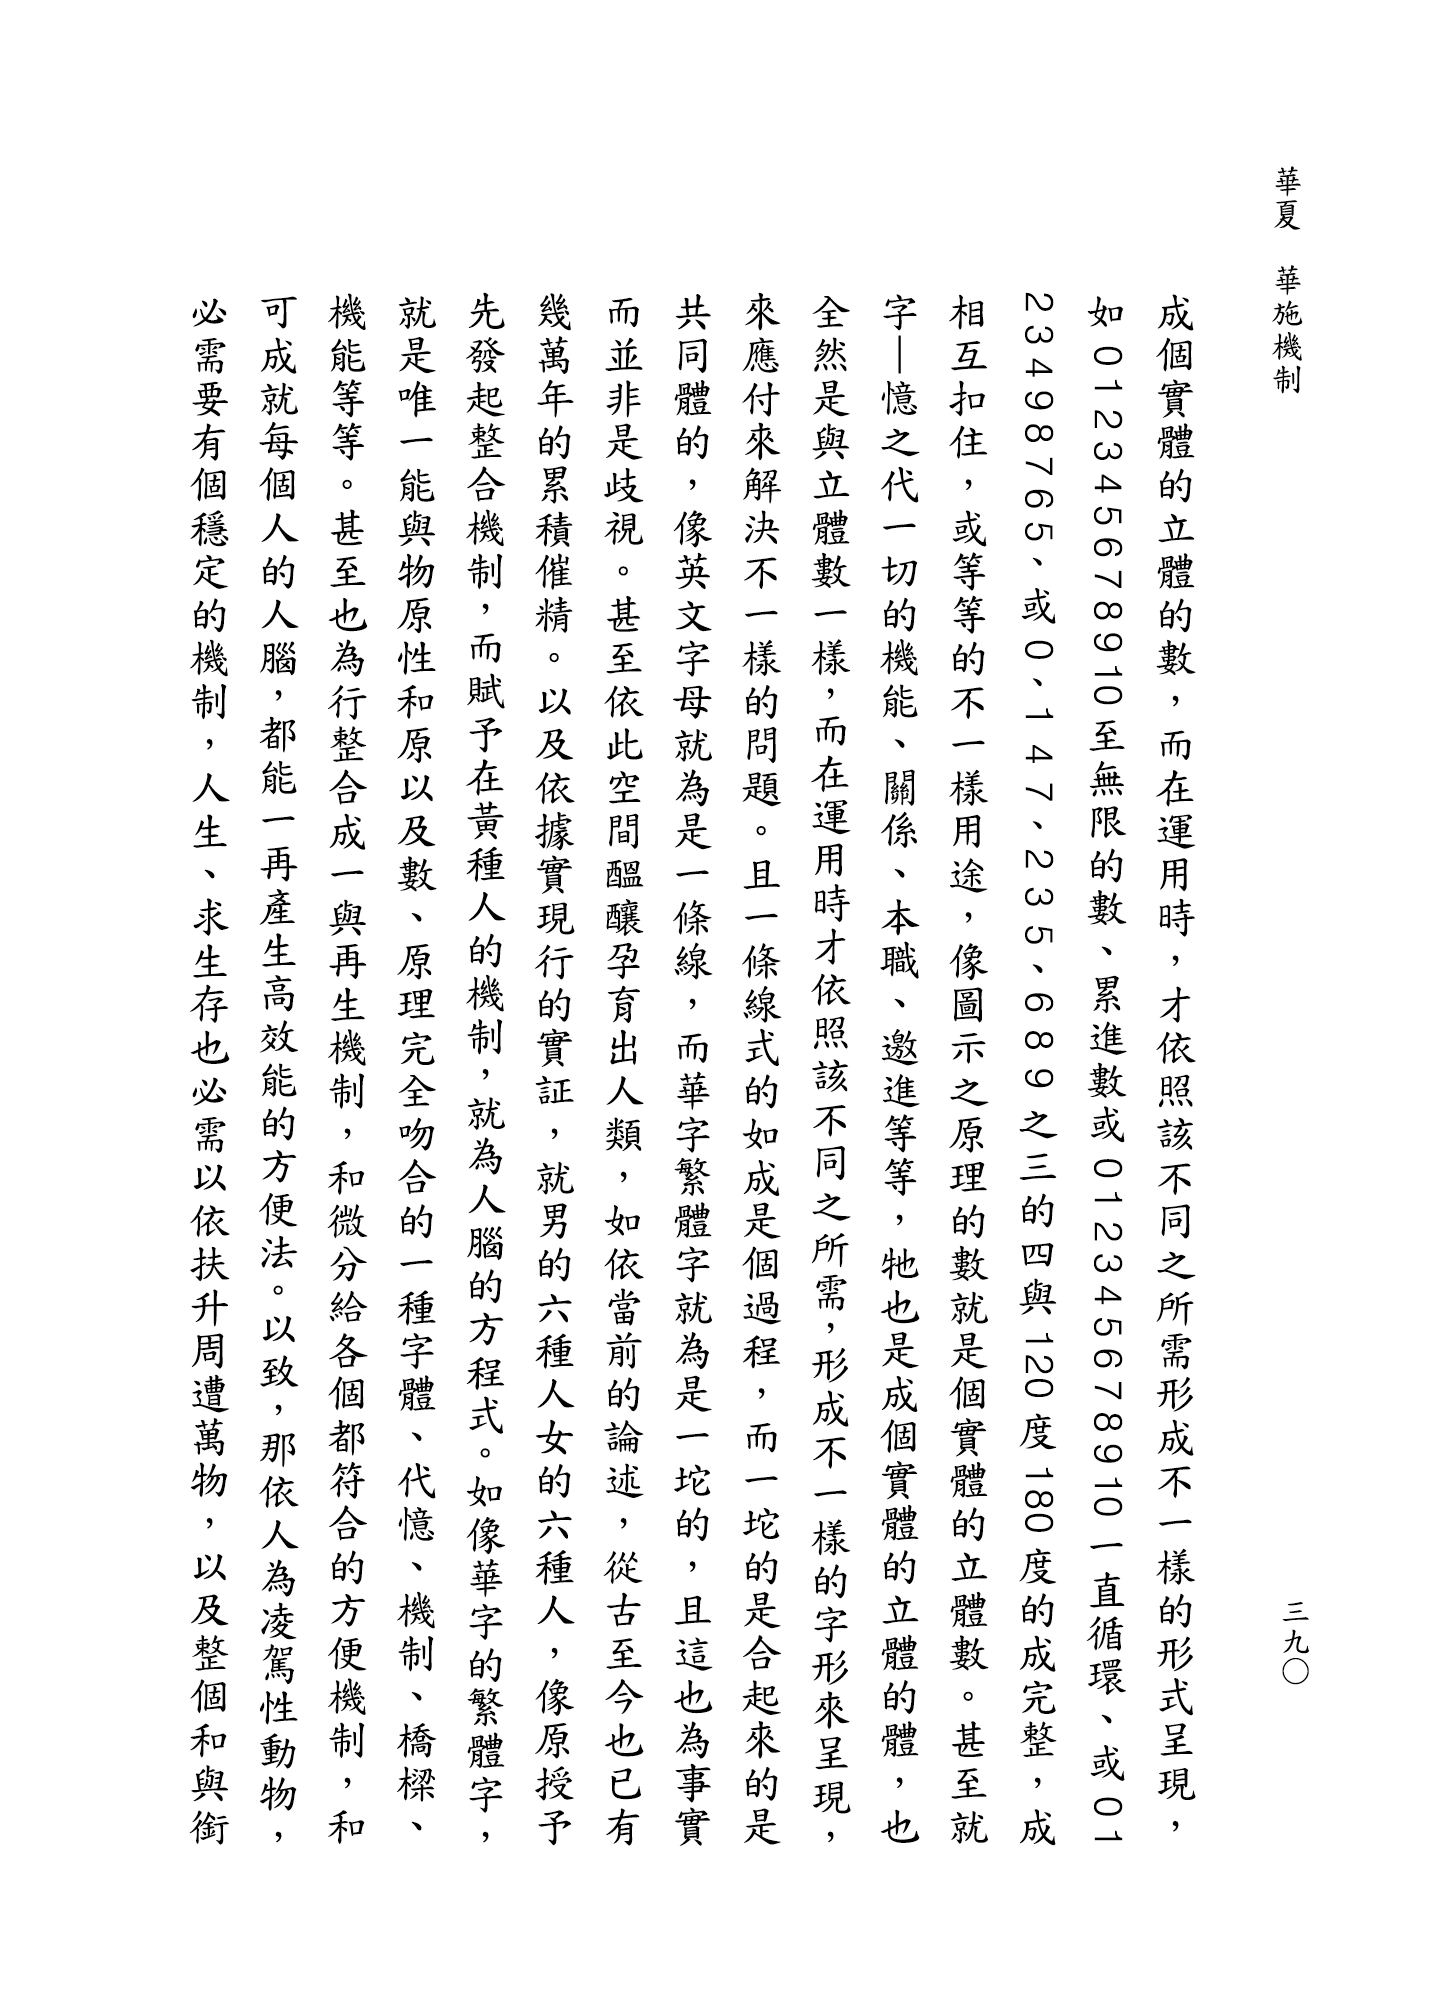 華夏　華施機制
三九〇
成個實體的立體的數，而在運用時，才依照該不同之所需形成不一樣的形式呈現，
如012345678910至無限的數、累進數或012345678910一直循環、或01
23498765、或0、147、235、689之三的四與120度180度的成完整，成
相互扣住，或等等的不一樣用途，像圖示之原理的數就是個實體的立體數。甚至就
字—憶之代一切的機能、關係、本職、邀進等等，牠也是成個實體的立體的體，也
全然是與立體數一樣，而在運用時才依照該不同之所需，形成不一樣的字形來呈現，
來應付來解決不一樣的問題。且一條線式的如成是個過程，而一坨的是合起來的是
共同體的，像英文字母就為是一條線，而華字繁體字就為是一坨的，且這也為事實
而並非是歧視。甚至依此空間醞釀孕育出人類，如依當前的論述，從古至今也已有
幾萬年的累積催精。以及依據實現行的實証，就男的六種人女的六種人，像原授予
先發起整合機制，而賦予在黃種人的機制，就為人腦的方程式。如像華字的繁體字，
就是唯一能與物原性和原以及數、原理完全吻合的一種字體、代憶、機制、橋樑、
機能等等。甚至也為行整合成一與再生機制，和微分給各個都符合的方便機制，和
可成就每個人的人腦，都能一再產生高效能的方便法。以致，那依人為凌駕性動物，
必需要有個穩定的機制，人生、求生存也必需以依扶升周遭萬物，以及整個和與銜